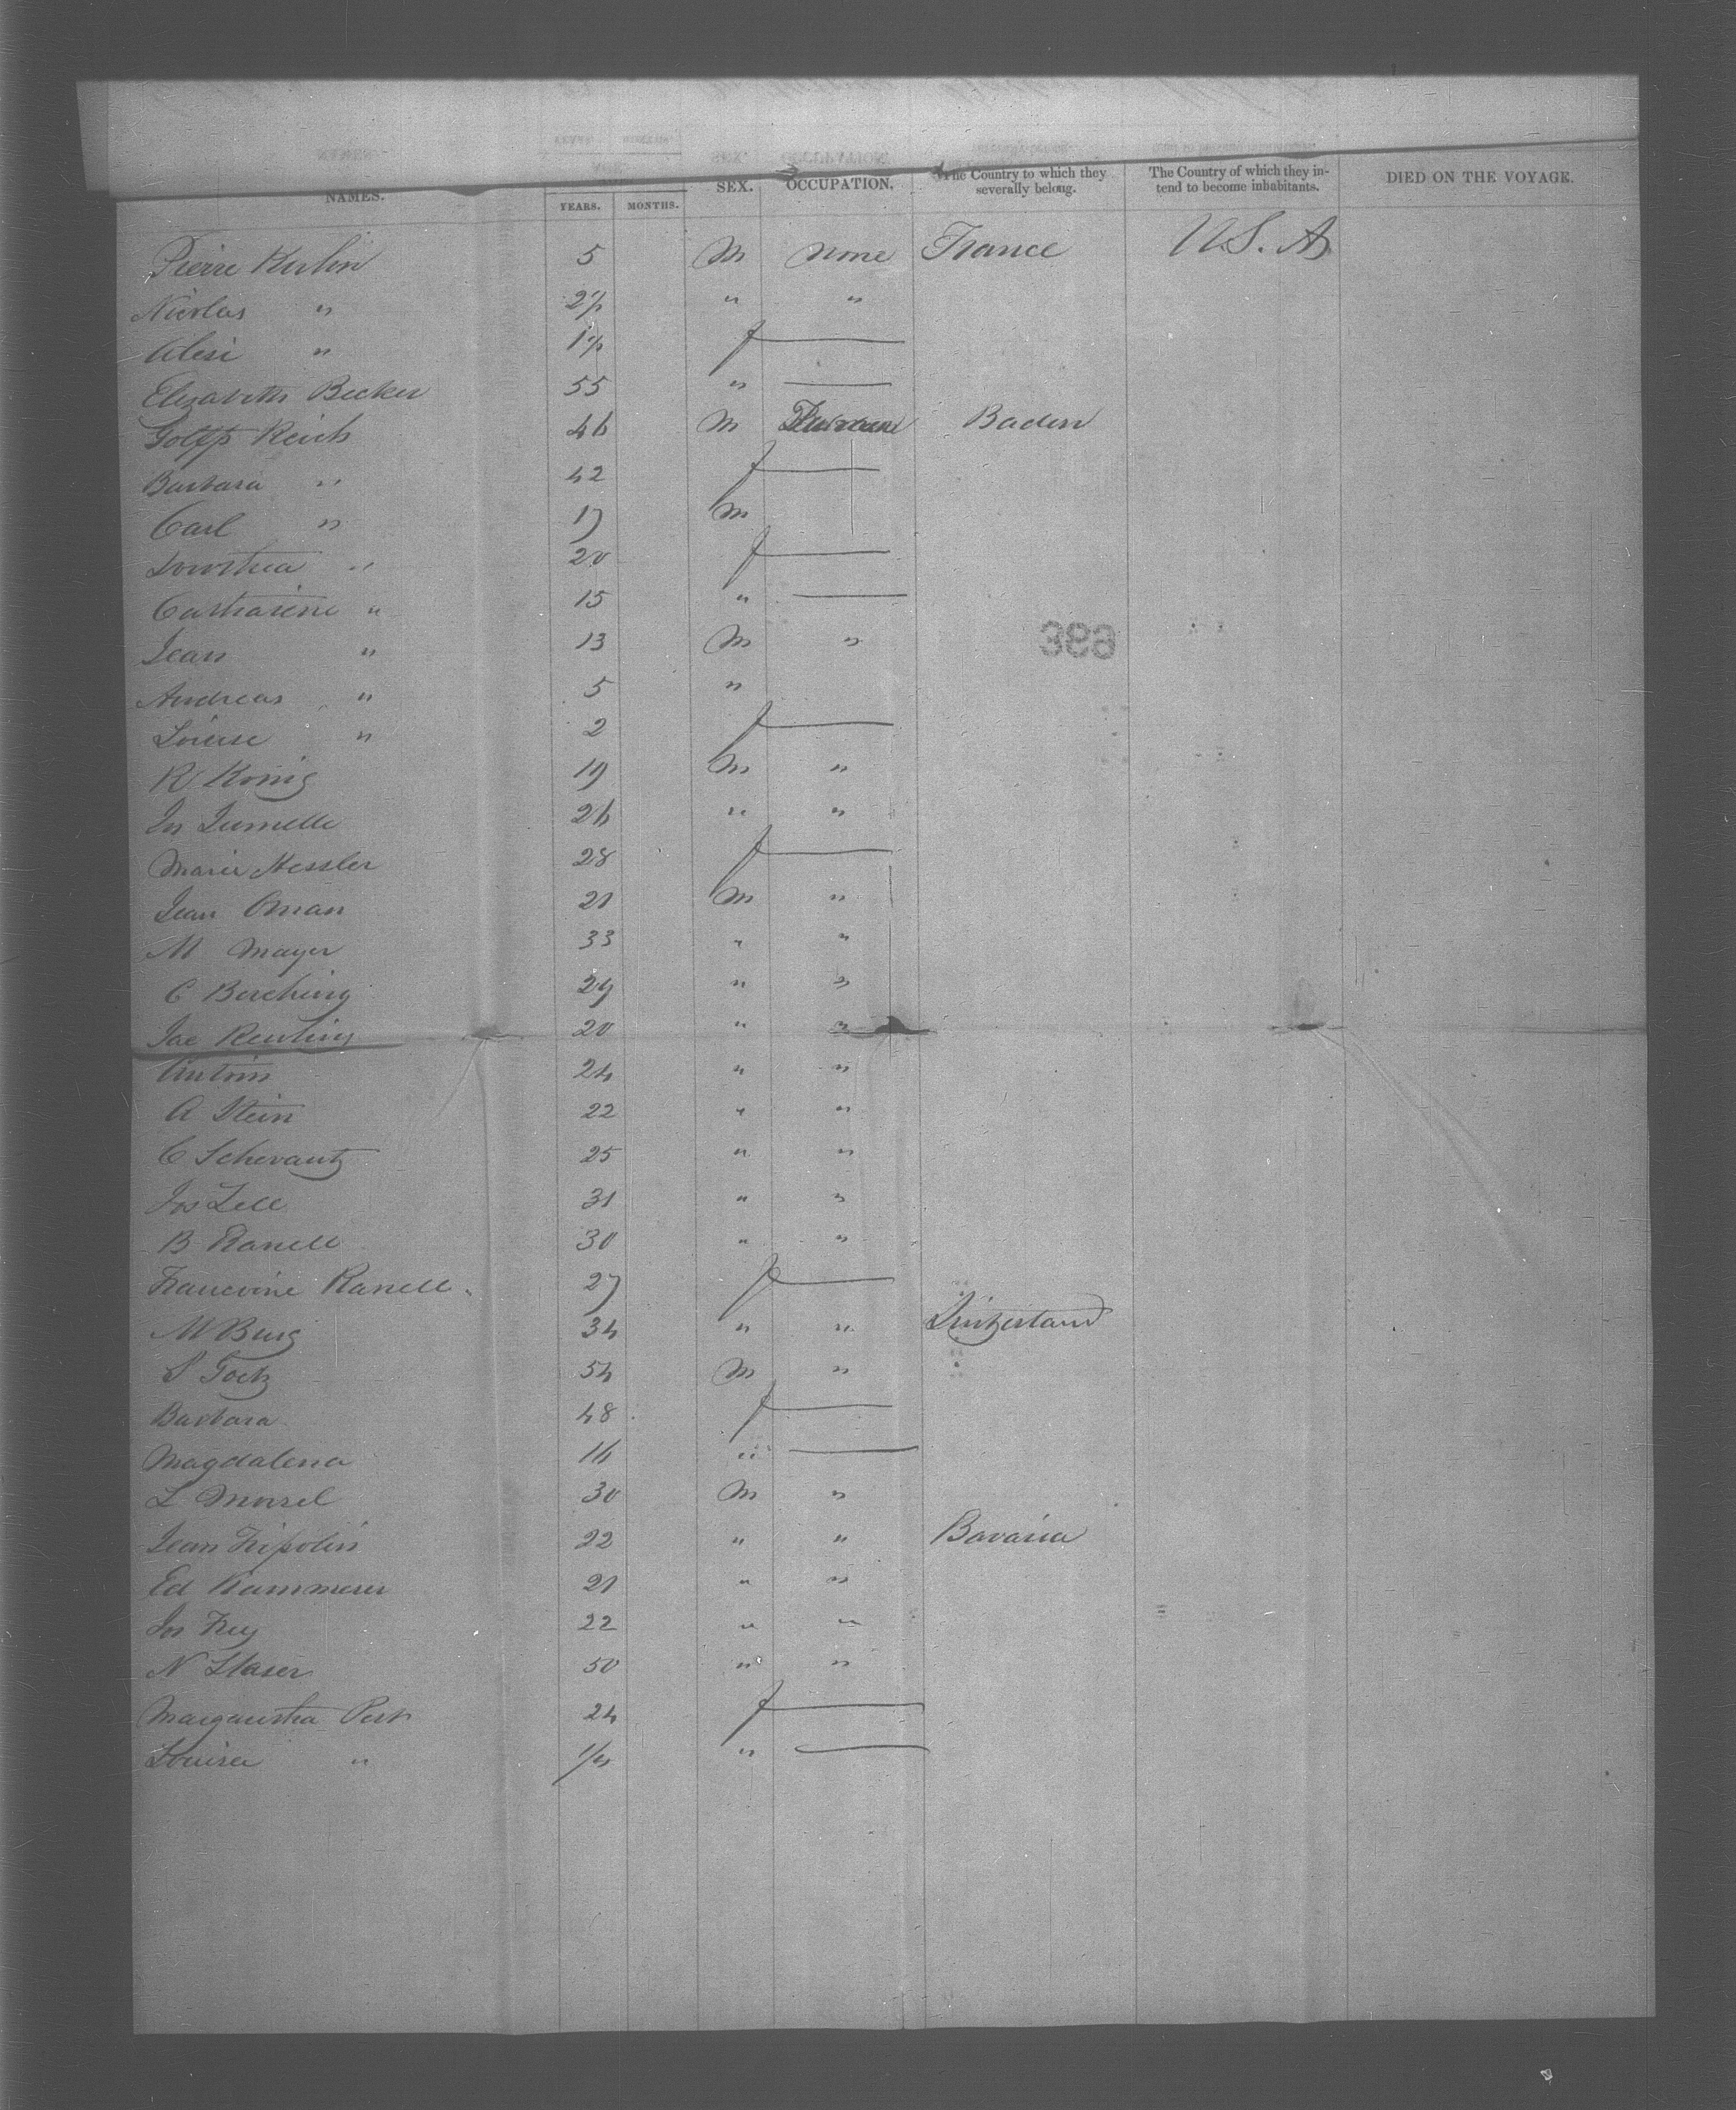 NAMES. YEARS. MONTHS. SEX. OCCUPATION. The Country to which they severally belong. The Country of which they intend to become inhabitants. DIED ON THE VOYAGE.
Pierre 5 M None France U.S. A
Nicolas " 2½ " "
" 1½ f
Elisabeth Becker 55 "
Reich 46 M Baden
Barbara " 42 f
Carl " 17 M
Dorothea " 20 f
Catharine " 15 "
Jean " 13 M "
Andreas " 5 "
Louise " 2 f
R König 19 M "
Jos Jumelle 26 " "
Marie Hessler 28 f
Jean Oman 21 M "
M Mayer 33 " "
C 29 " "
Jac Reuling 20 " "
Antoin 24 " "
A Stein 22 " "
C Schevantz 25 " "
Jos Lell 31 " "
B Ranell 30 " "
Ranell 27 f
M Burg 34 " "
S Goetz 54 M "
Barbara 48 f
Magdalena 16 "
L Morel 30 M "
Jean 22 " " Bavaria
Ed Kammerer 21 " "
Jos Frey 22 " "
N 50 " "
Margaretha 24 f
Louisa " "
389